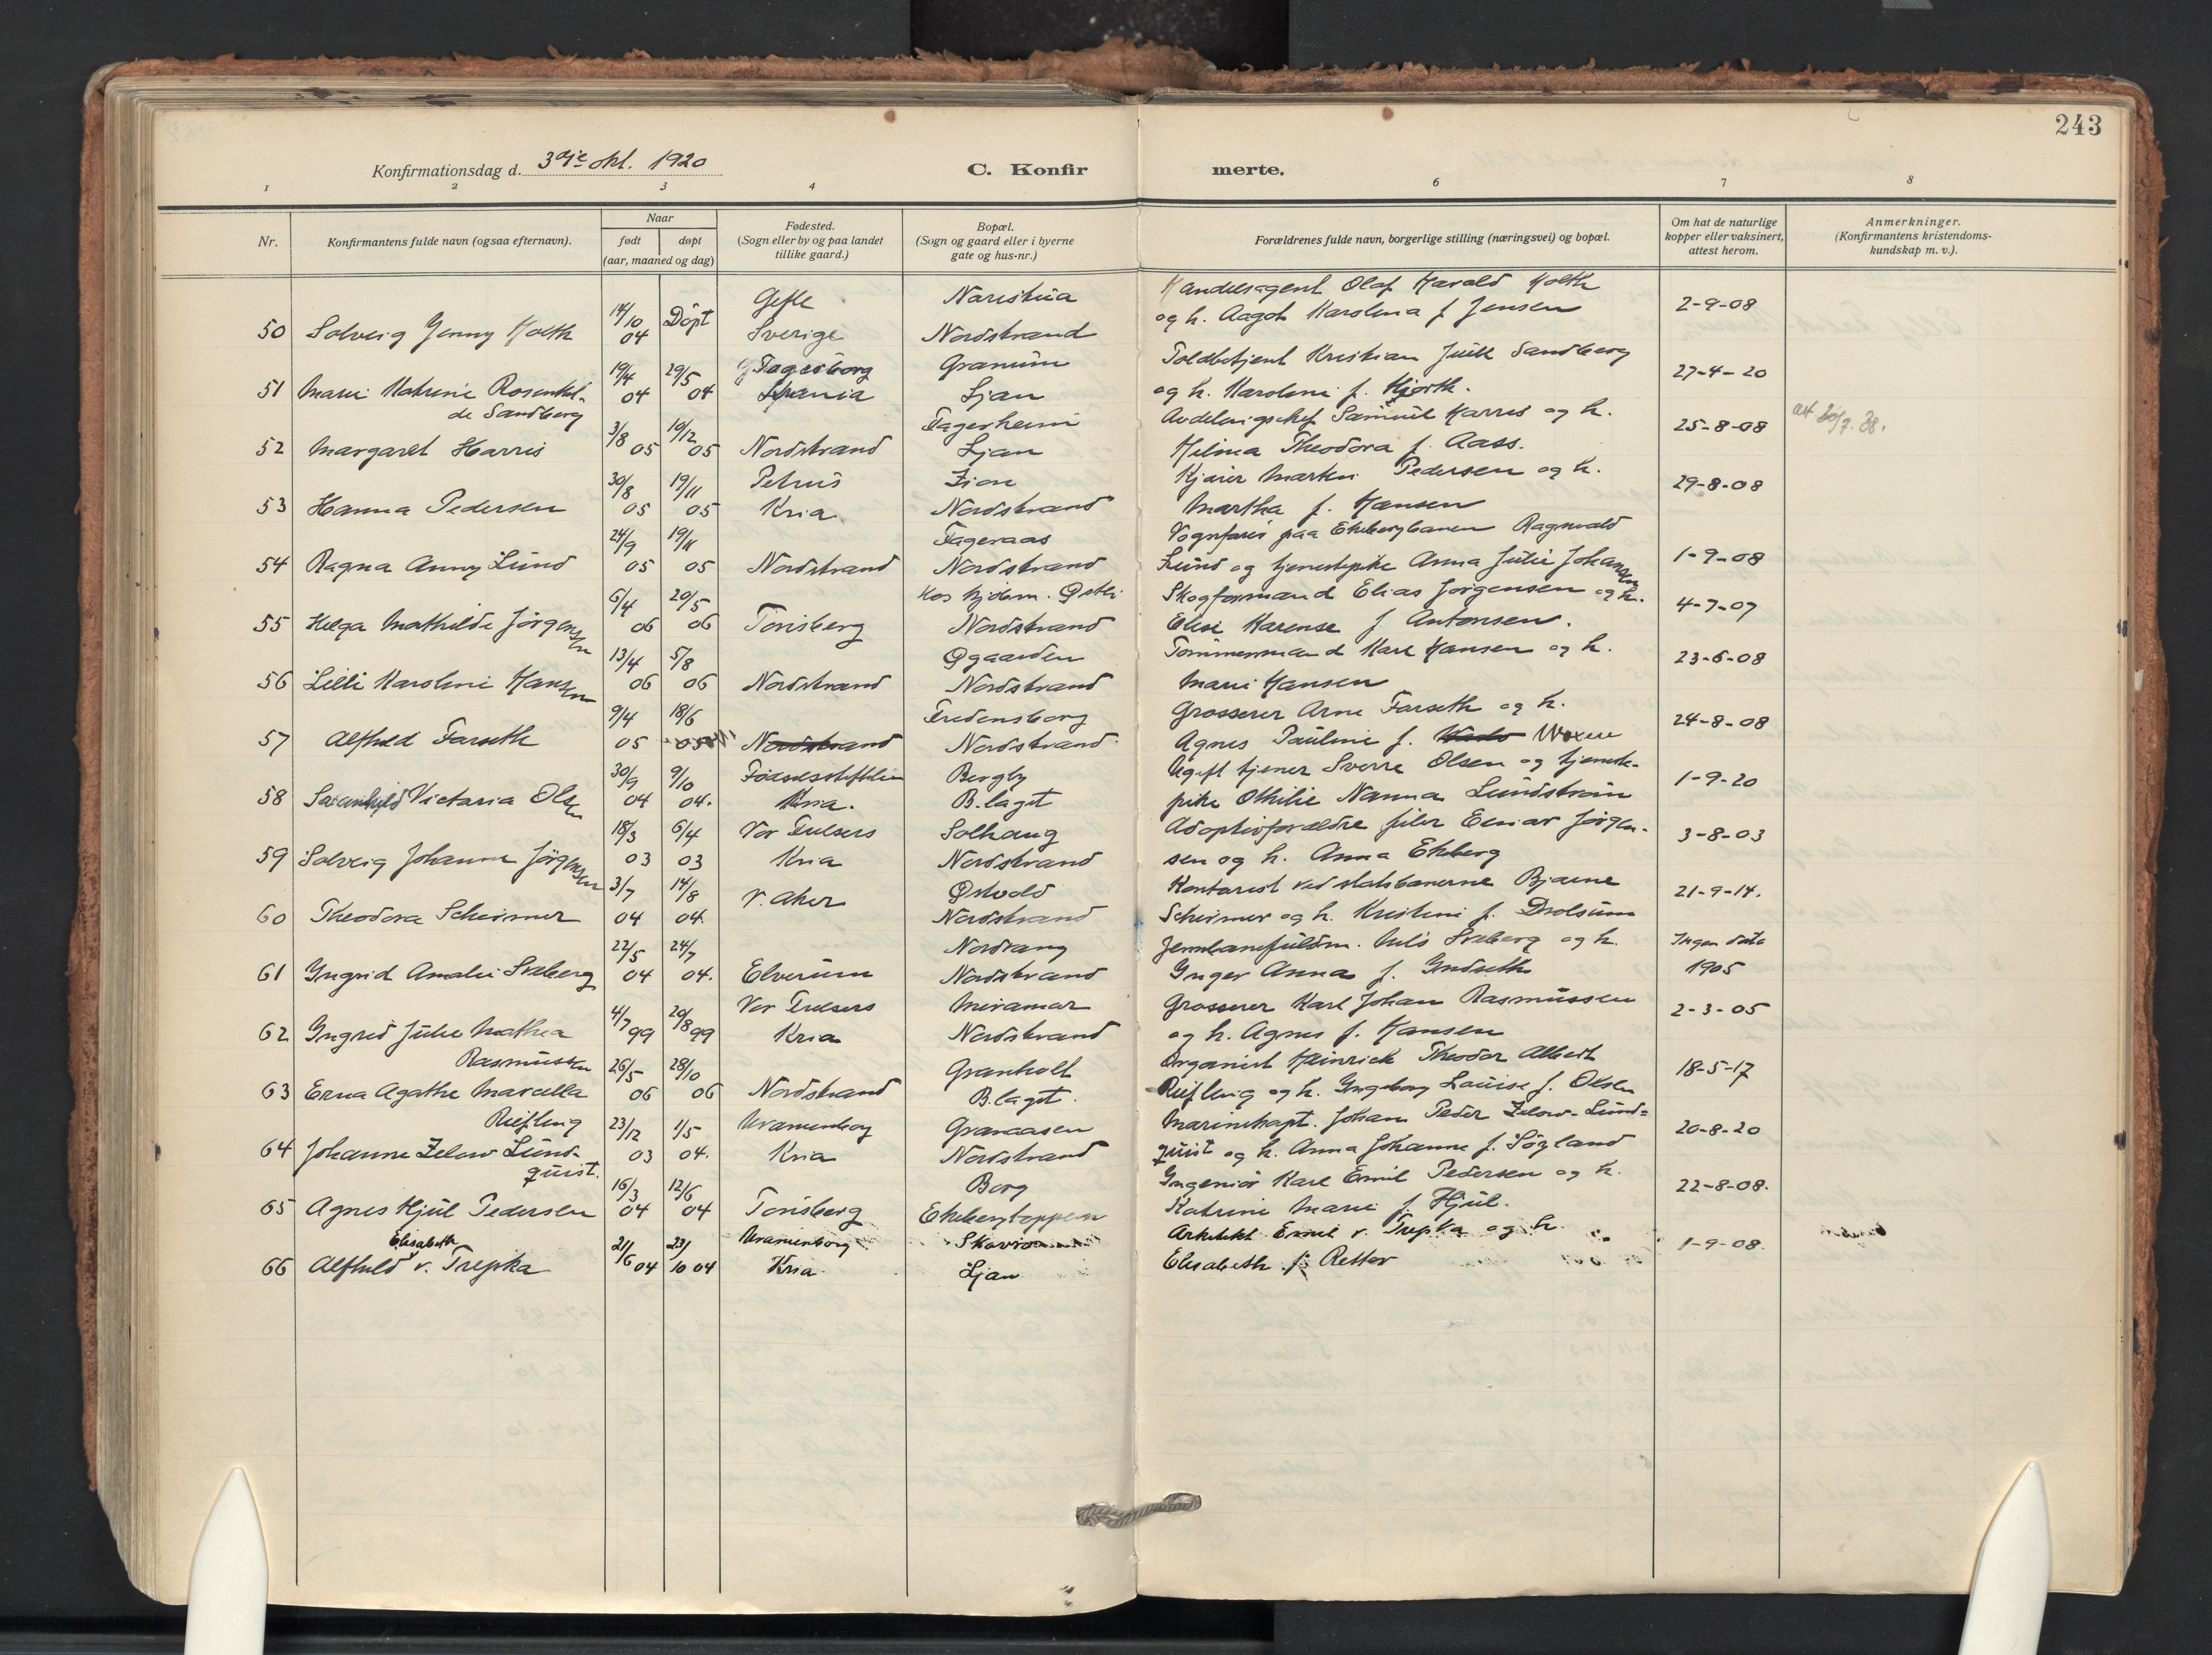 243
Konfirmationsdag d. 3dje okt. 1920
C. Konfirmerte.
1 2 3 4 6 7 8
Nr.
Konfirmantens fulde navn (ogsaa efternavn).
Naar
født døpt
(aar, maaned og dag)
Fødested.
(Sogn eller by og paa landet
tillike gaard.)
Bopæl.
(Sogn og gaard eller i byerne
gate og hus-nr.)
Forældrenes fulde navn, borgerlige stilling (næringsvei) og bopæl.
Om hat de naturlige
kopper eller vaksinert,
attest herom.
Anmerkninger.
(Konfirmantens kristendoms-
kundskap m. v.).
14/10 Döpt Gefle Narestua Handelsagent Olaf Harald Holth 2-9-08
50 Solveig Jenny Holth 04 Sverige Nordstrand og h. Aagot Karolina f Jensen
19/4 29/5 Fagerborg Granum Toldbetjent Kristian Juell Sandberg 27-4-20
51 Marie Katrine Rosenkil- 04 04 Ljan og h. Karoline f. Hjorth.
de Sandberg
3/8 10/12 Fagerheim Avdelingschef Samuel Harris og h. 25-8-08
52 Margaret Harris 05 05 Nordstrand Ljan Hilma Theodora f. Aass.
30/8 19/11 Petrus Zion Kjører Martin Pedersen og h. 29-8-08
53 Hanna Pedersen 05 05 Kria Nordstrand Martha f. Hansen
24/9 19/11 Fageraas Vognfører paa Ekebergbanen Ragnvald 1-9-08
54 Ragna Anny Lund 05 05 Nordstrand Nordstrand Lund og tjenestepike Anna Julie Johansen
6/4 20/5 Hos Østli Skogformand Elias Jörgensen og h. 4-7-07
55 Helga Mathilde Jörgensen 06 06 Tönsberg Nordstrand Elise Karense f Antonsen.
13/4 5/8 Øgaarden Tömmermand Karl Hansen og h. 23-6-08
56 Lilli Karoline Hansen 06 06 Nordstrand Nordstrand Marie Hansen
9/4 18/6 Fredensborg Grosserer Arne Farseth og h. 24-8-08
57 Alfhild Farseth 05 05 Nordstrand Nordstrand Agnes Pauline f. Woxen
30/9 9/10 Fødselsstiftelsen Bergly Ugift tjener Sverre Olsen og tjeneste- 1-9-20
58 Victoria Olsen 04 04. Kria. B.laget pike Othilie Nanna Lundström
18/3 6/4 Vor Frelsers Solhaug Adoptivforældre filer Einar Jörgen- 3-8-03
59 Solveig Johanne Jörgensen 03 03 Kria Nordstrand sen og h. Anna Ekeberg
3/7 14/8 V. Aker Østvold Kontorist ved statsbanerne Bjarne 21-9-14.
60 Theodora Scheirmer 04 04. Nordstrand Scheirmer og h. Kristine f. Drolsum
22/5 24/7 Nordvang Jernbanefuldm. Nils Sveberg og h. Ingen dato
61 Yngrid Amalie Sveberg 04 04. Elverum Nordstrand Ynger Anna f. Yndseth 1905
4/7 20/8 Vor Frelsers Miramar Grosserer Karl Johan Rasmussen 2-3-05
62 Yngrid Julie Mathea 99 99 Kria Nordstrand og h. Agnes f. Hansen
Rasmussen
26/5 28/10 Granholt Organist Heinrich Theodor Albert 18-5-17
63 Erna Agathe Marcella 06 06 Nordstrand B.laget. Riefling og h. Yngeborg Louise f. Olsen
Riefling
23/12 1/5 Uranienborg Granaasen Marinekapt. Johan Peder Zelow-Lund= 20-8-20
64 Johanne Zelow Lund- 03 04. Kria Nordstrand quist og h. Anna Johanne f. Sögland
quist.
16/3 12/6 Borg Yngeniör Karl Emil Pedersen og h. 22-8-08.
65 Agnes Hjul Pedersen 04 04 Tönsberg Ekebergtoppen Katrine Marie f. Hjul.
Elisabeth
21/6 23/10 Uranienborg Arkitekt Emil v. Trepka og h. 1-9-08.
66 Alfhild v. Trepka 04 04 Kria Ljan Elisabeth f. Retter